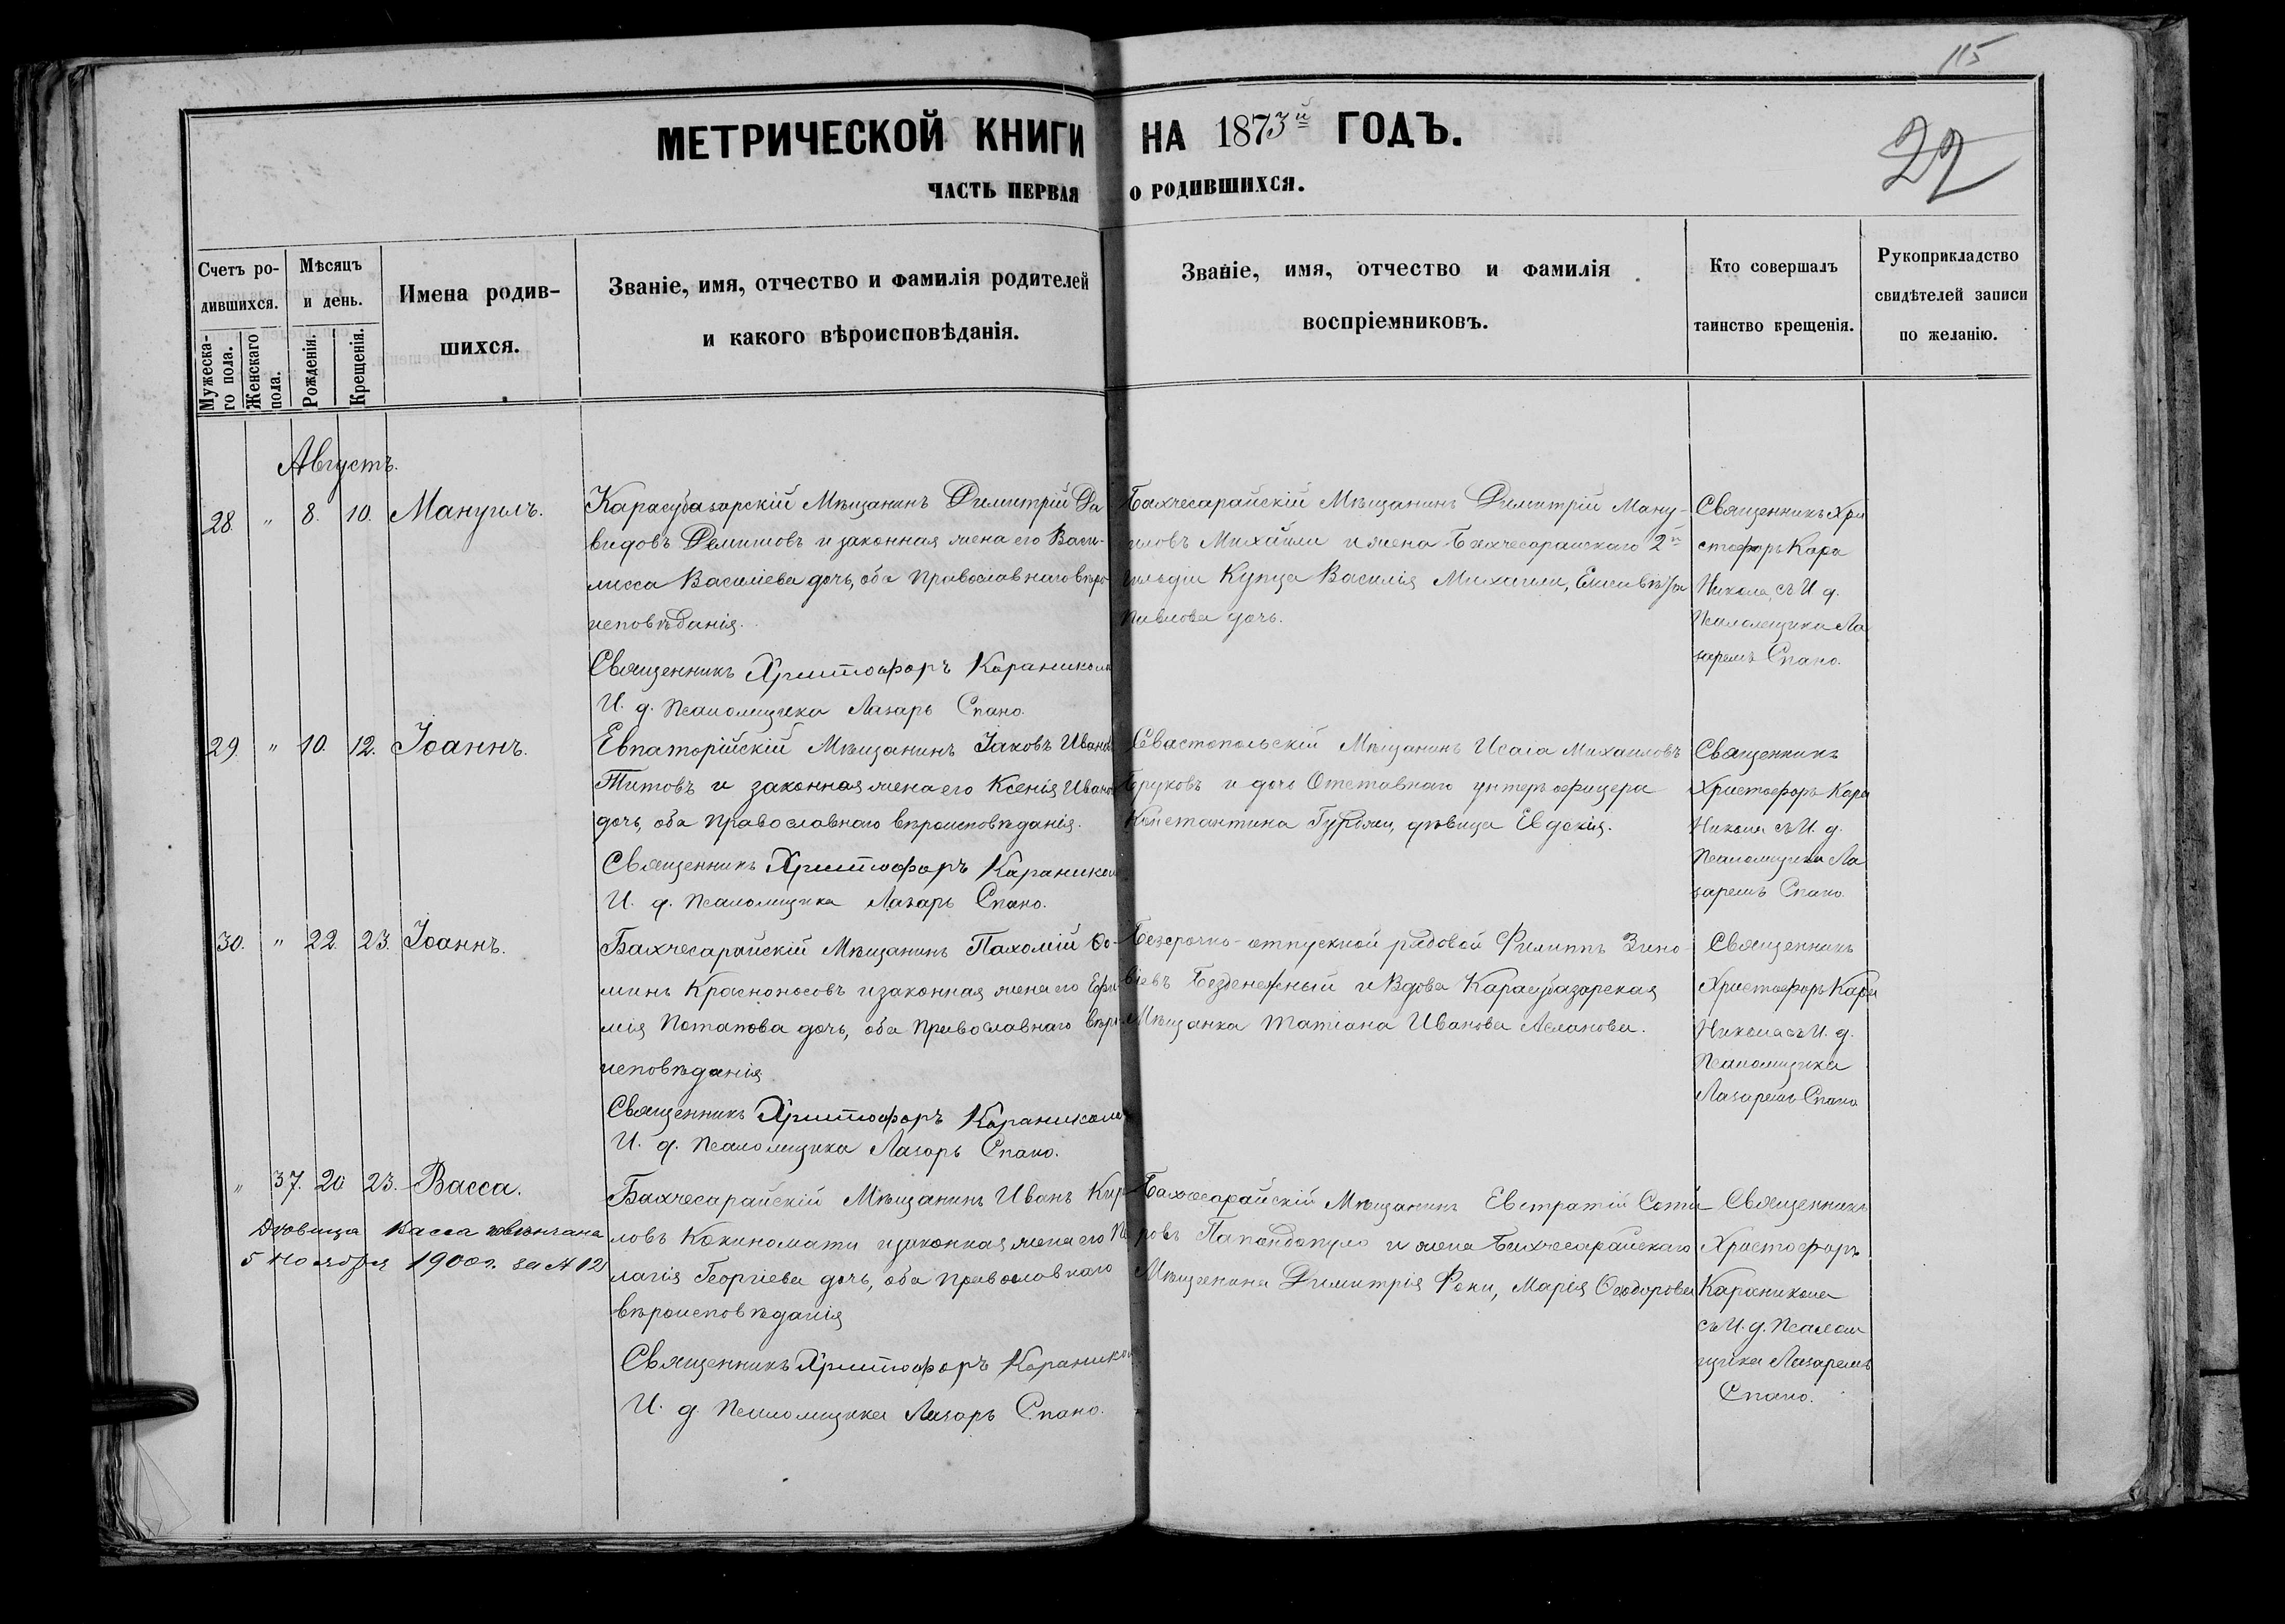 115
МЕТРИЧЕСКОЙ КНИГИ НА 1873й ГОДЪ.
22
ЧАСТЬ ПЕРВАЯ О РОДИВШИХСЯ.
Счетъ ро-
дившихся.
Мужеска-
го пола.
Женскаго
пола.
Мѣсяцъ
и день.
Рожденія.
Крещенія.
Имена родив-
шихся.
Званіе, имя, отчество и фамилія родителей
и какого вѣроисповѣданія.
Званіе, имя, отчество и фамилія
воспріемниковъ.
Кто совершалъ
таинство крещенія.
Рукоприкладство
свидѣтелей записи
по желанію.
Августъ.
28 " 8. 10. Мануилъ.
Карасубазарскій Мѣщанинъ Димитрій Да
видовъ Демишовъ и законная жена его Васи-
лисса Василіева дочь, оба Православнаго вѣро
исповѣданія.
Священникъ Христофоръ Караникола
И. д. Псаломщика Лазарь Спано.
Бахчесарайскій Мѣщанинъ Димитрій Ману-
иловъ Михайли и жена Бахчесарайскаго 2й
гильдіи Купца Василія Михаили, Елисавѣта
Павлова дочь.
Священникъ Хри
стофоръ Кара
Никола, съ И. д.
Псаломщика Ла
заремъ Спано.
29 " 10. 12. Іоаннъ.
Евпаторійскій Мѣщанинъ Іаковъ Иванов
Титовъ и законная жена его Ксенія Иванова
дочь, оба Православнаго вѣроисповѣданія.
Священникъ Христофоръ Караникола
И. д. Псаломщика Лазарь Спано.
Севастопольскій Мѣщанинъ Исаіа Михаиловъ
Бруковъ и дочь Отставнаго унтеръ офицера
Константина Гурджи, дѣвица Евдокія.
Священникъ
Христофоръ Кара
Никола съ И. д.
Псаломщика Ла
заремъ Спано
30. " 22. 23. Іоаннъ.
Бахчесарайскій Мѣщанинъ Пахомій Ѳо-
минъ Красноносовъ и законная жена его Ефи
мія Потапова дочь, оба Православнаго вѣро
исповѣданія
Священникъ Христофоръ Караникола
И. д. Псаломщика Лазарь Спано.
Безсрочно-отпускной рядовой Филиппъ Зино-
віевъ Безденежный и Вдова Карасубазарская
Мѣщанка Татіана Иванова Асланова.
Священникъ
Христофоръ Кара
Никола съ И. д.
Псаломщика
Лазаремъ Спано
" 37. 20 23. Васса.
Дѣвица Васса повѣнчана
5 Ноября 1900г. за № 12
Бахчесарайскій Мѣщанинъ Иванъ Кири
ловъ Кокиномати и законная жена его Пе
лагія Георгіева дочь, оба Православнаго
вѣроисповѣданія
Священникъ Христофоръ Караникола
И. д. Псаломщика Лазарь Спано.
Бахчесарайскій Мѣщанинъ Евстратій Соти-
ровъ Папандопуло и жена Бахчесарайскаго
Мѣщанина Димитрія Фоки, Марія Ѳеодорова
Священникъ
Христофоръ
Караникола
съ И. д. Псалом
щика Лазаремъ
Спано.